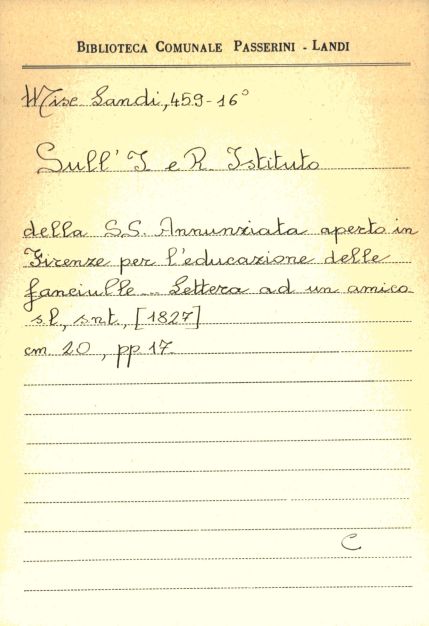 BIBLIOTECA COMUNALE PASSERINI - LANDI
Misc Landi, 459-16°
Sull' I e R. Istituto
della SS. Annunziata aperto in
Firenze per l'educazione delle
fanciulle... Lettera ad un amico
s.l., s.n.t., [1827]
cm. 20, pp 17.
C